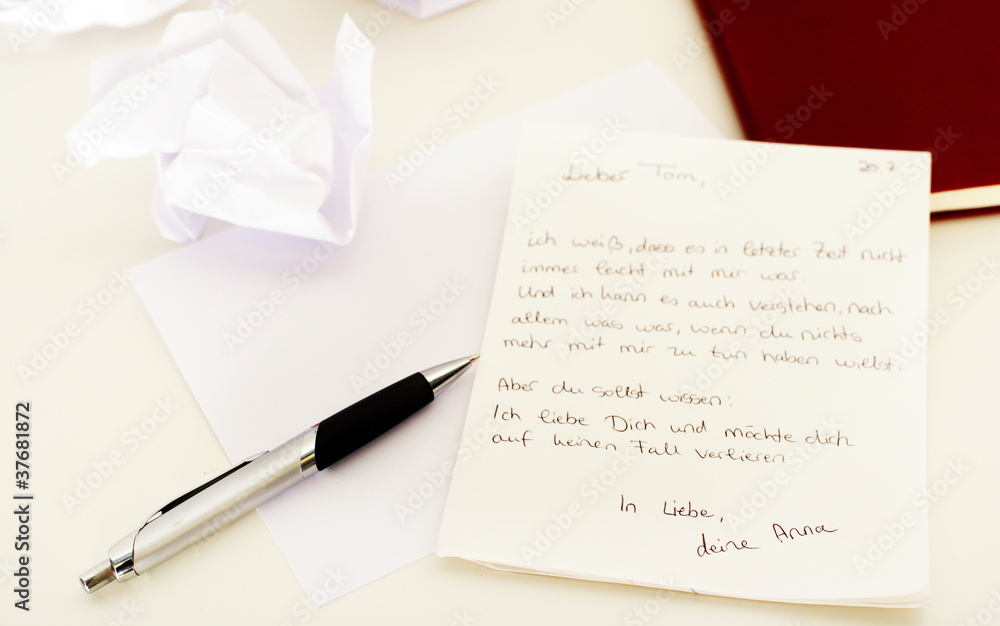 20.7
Lieber Tom,
ich weiß, dass es in letzter Zeit nicht
immer leicht mit mir war.
Und ich kann es auch verstehen, nach
allem was war, wenn du nichts
mehr mit mir zu tun haben willst.
Aber du sollst wissen:
Ich liebe Dich und möchte dich
auf keinen Fall verlieren
In Liebe,
deine Anna
Adobe Stock | #37681872